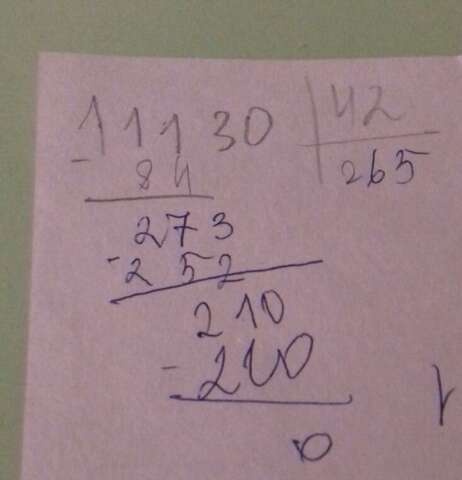 11130 | 42
- 84 265
273
- 252
210
- 210
0